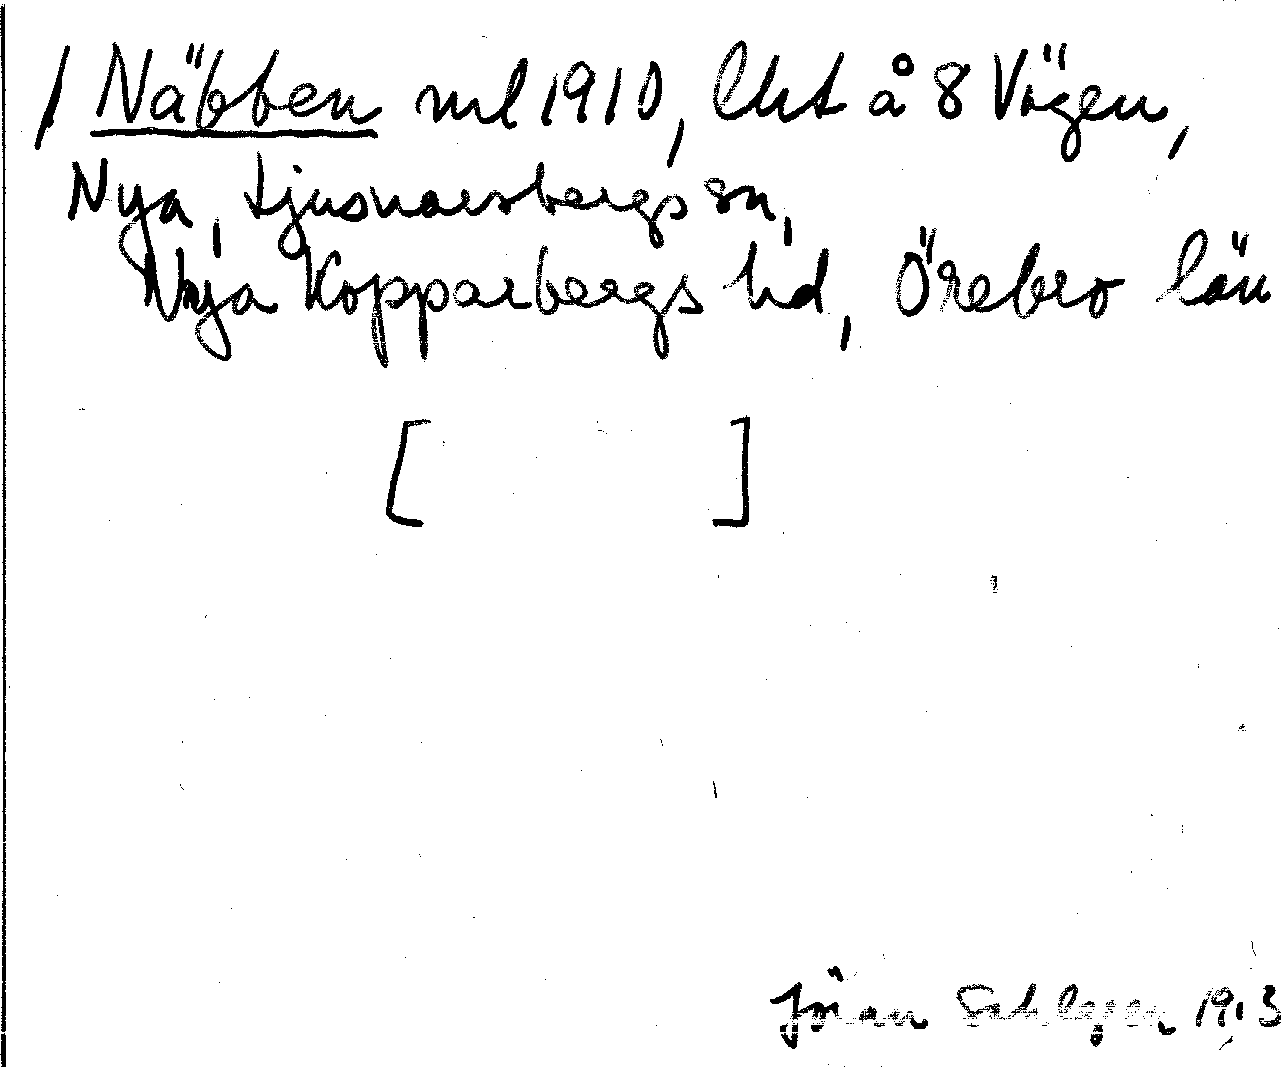 / Näbben ml 1910, lht å 8 Vägen,
Nya, Ljusnarsbergs sn,
Nya Kopparbergs hd, Örebro län
[ ]
Jöran Sahlgren 1913